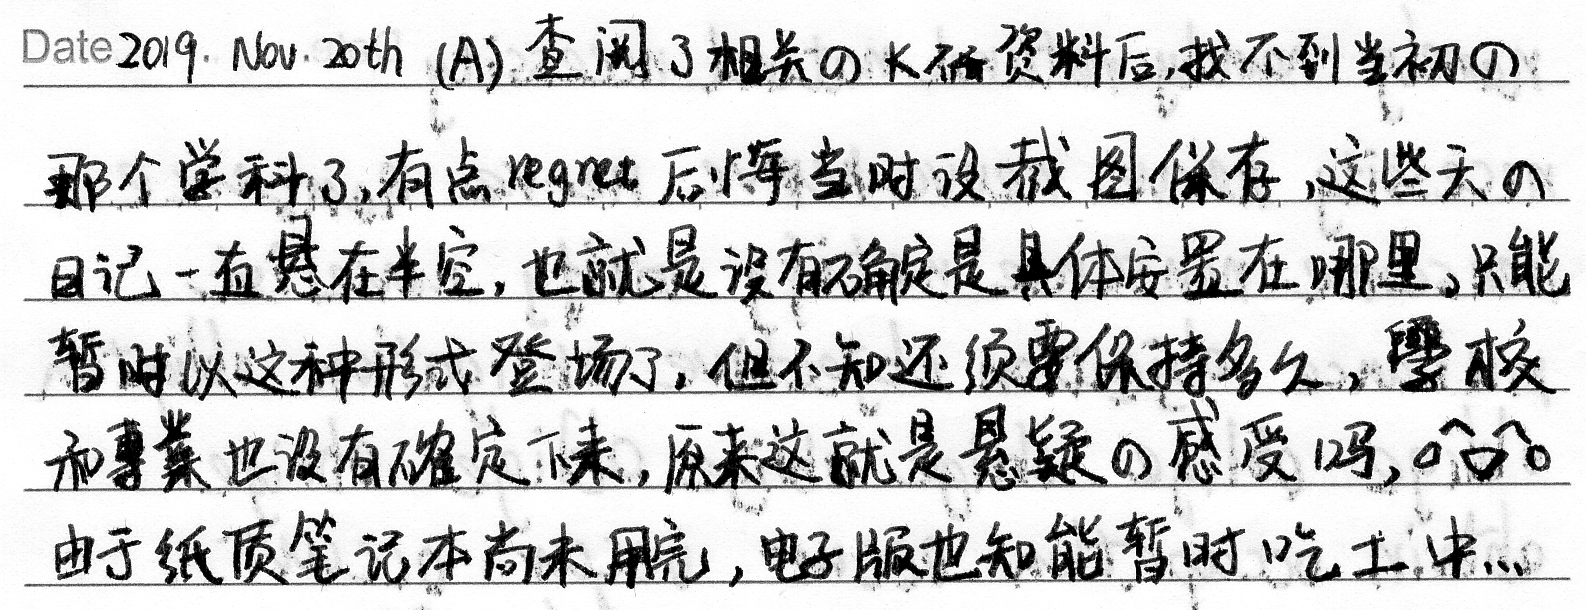 Date 2019. Nov. 20th (A) 查阅了相关の K 资料后,找不到当初の
那个学科了,有点regret 后悔当时没截图保存,这些天の
日记一直悬在半空,也就是没有确定是具体安置在哪里,只能
暂时以这种形式登场了,但不知还须要保持多久,學校
和專業也没有確定下来,原来这就是悬疑の感受吗,o^o^o
由于纸质笔记本尚未用完,电子版也知能暂时吃土中...